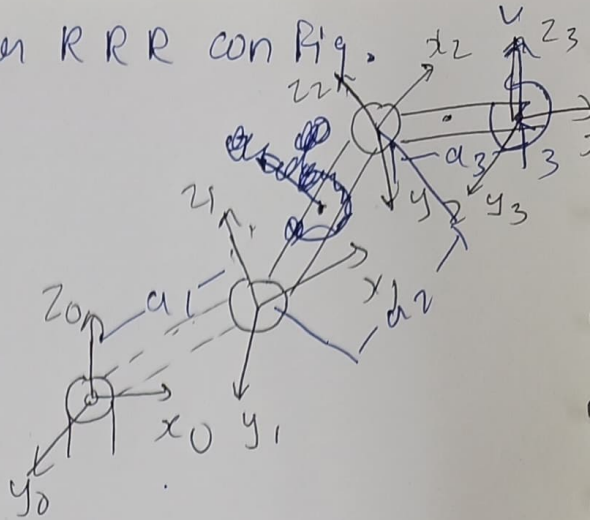 RRR con Fig.
x2
z3
z2
a3
3
y2
y3
z1
x1
a1
a2
z0
x0
y1
y0